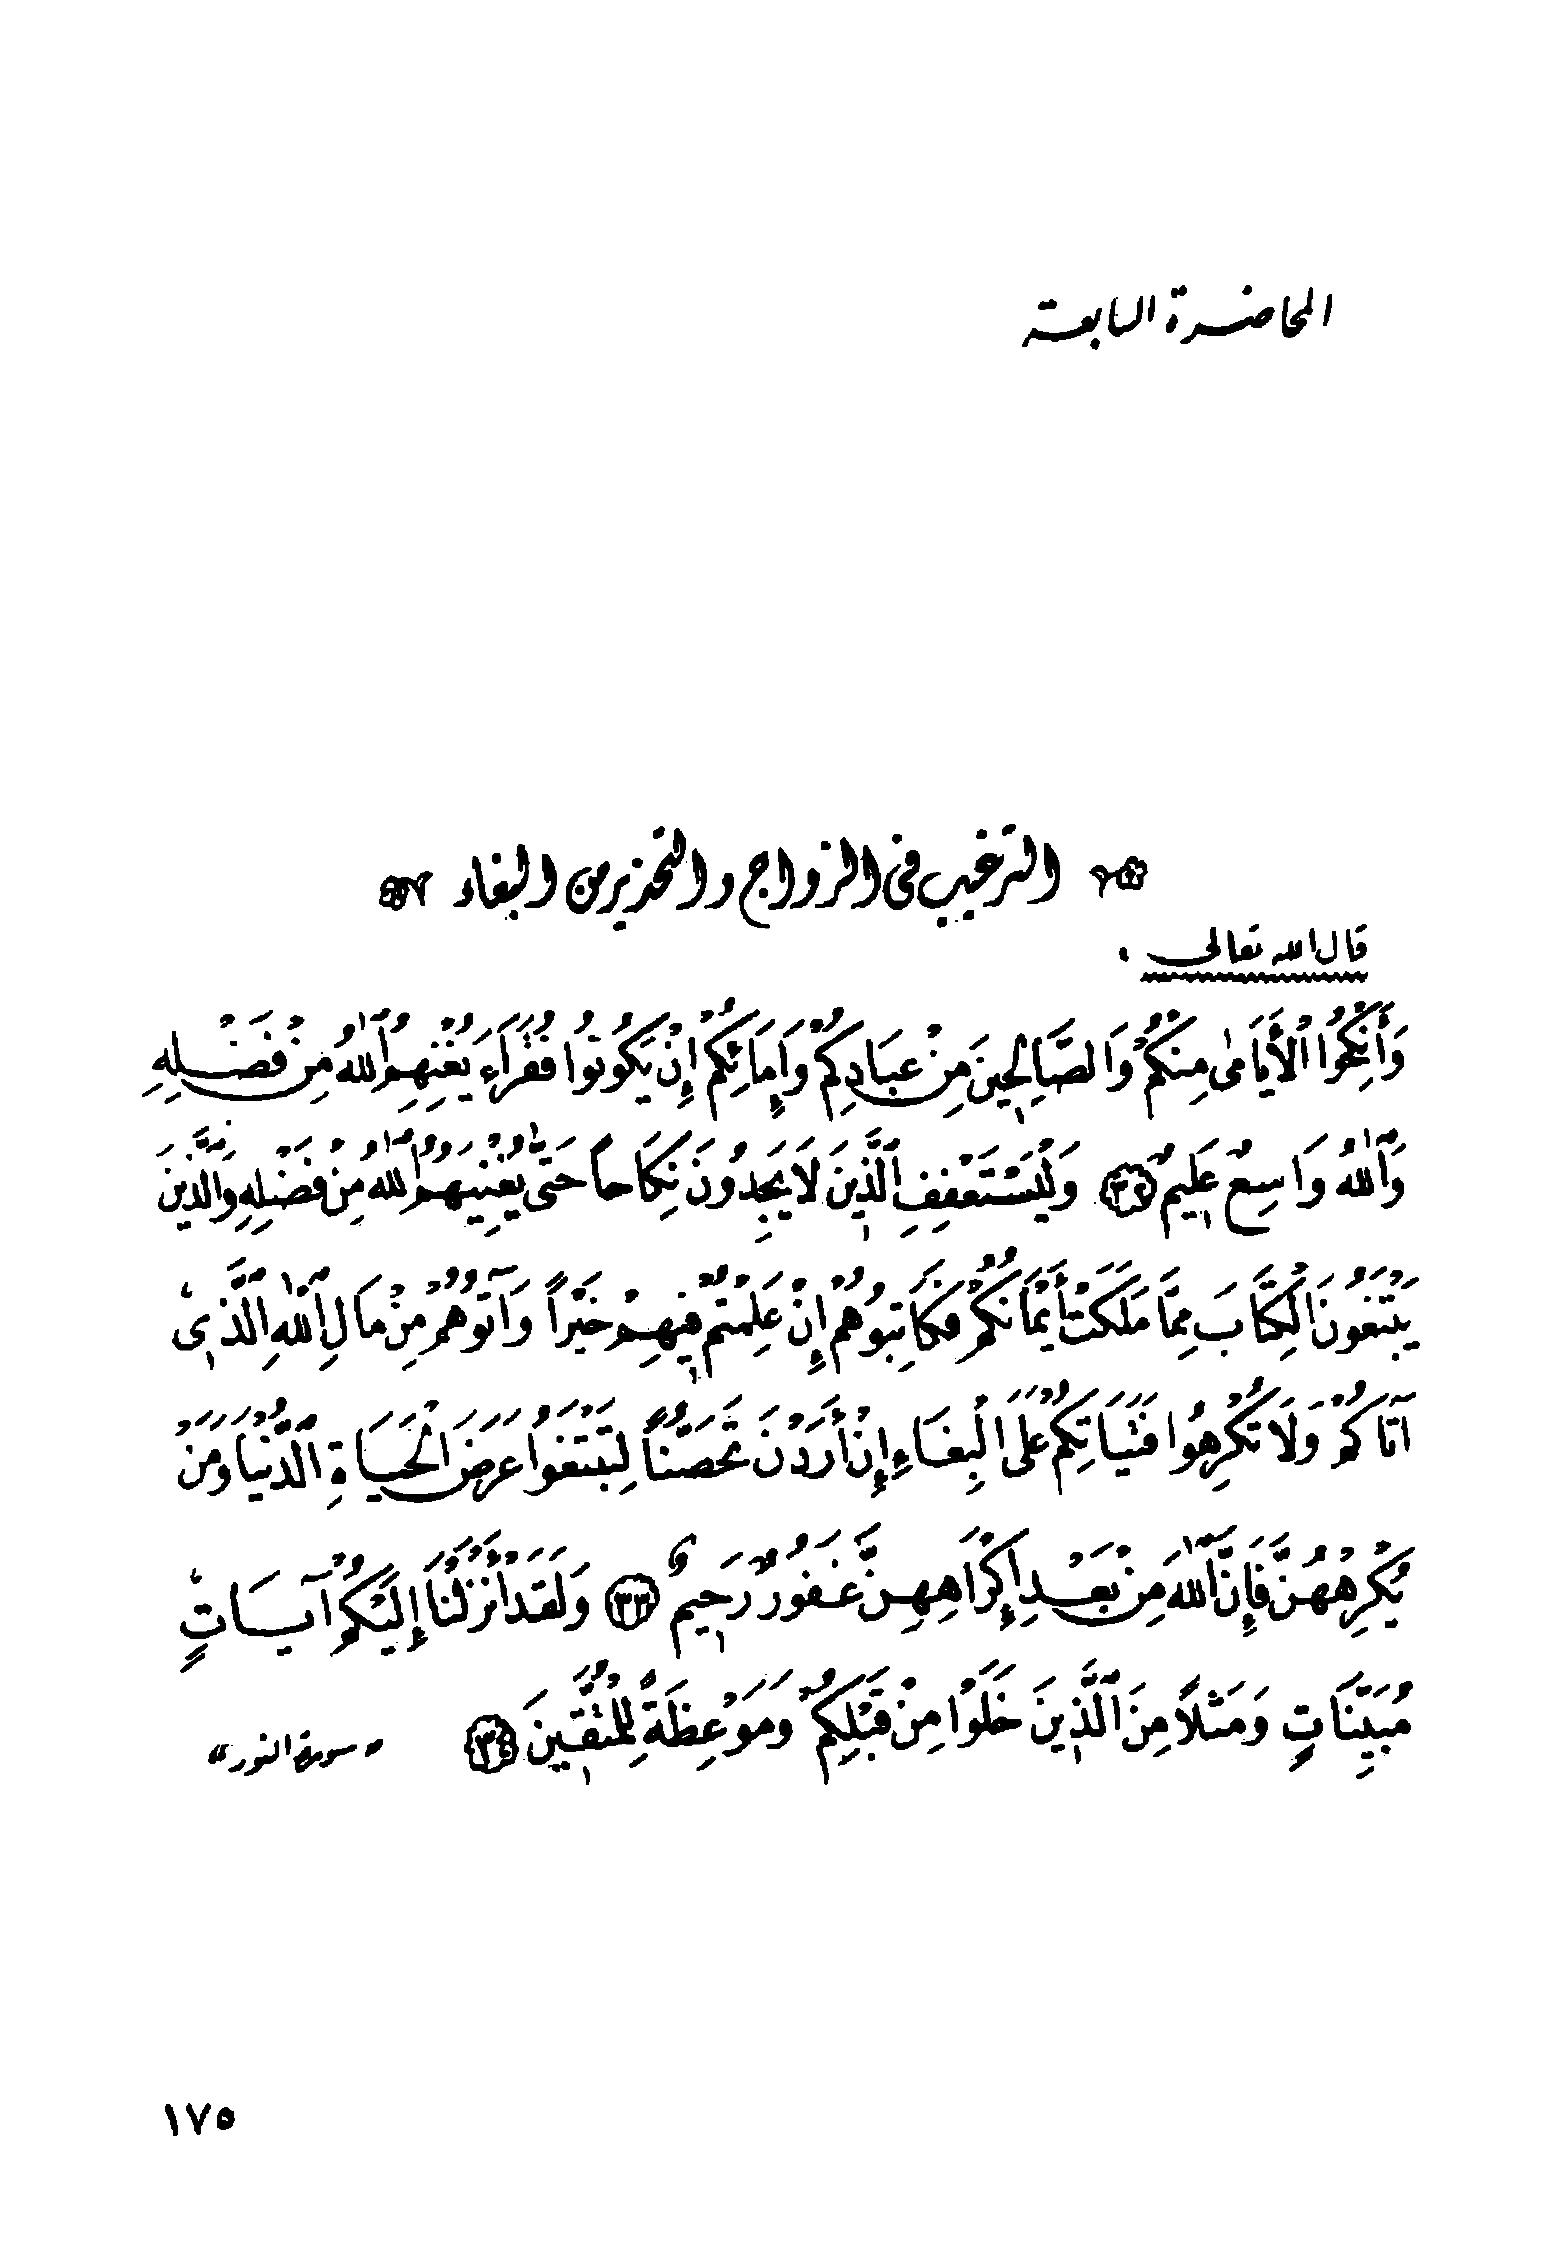 المحاضرة السابعة
الترغيب في الزواج والتحذير من البغاء
قال الله تعالى .
وَأَنْكِحُوا الْأَيَامَىٰ مِنْكُمْ وَالصَّالِحِينَ مِنْ عِبَادِكُمْ وَإِمَائِكُمْ إِنْ يَكُونُوا فُقَرَاءَ يُغْنِهِمُ اللَّهُ مِنْ فَضْلِهِ
وَاللَّهُ وَاسِعٌ عَلِيمٌ ٣٢ وَلْيَسْتَعْفِفِ الَّذِينَ لَا يَجِدُونَ نِكَاحاً حَتَّىٰ يُغْنِيَهُمُ اللَّهُ مِنْ فَضْلِهِ وَالَّذِينَ
يَبْتَغُونَ الْكِتَابَ مِمَّا مَلَكَتْ أَيْمَانُكُمْ فَكَاتِبُوهُمْ إِنْ عَلِمْتُمْ فِيهِمْ خَيْراً وَآتُوهُمْ مِنْ مَالِ اللَّهِ الَّذِي
آتَاكُمْ وَلَا تُكْرِهُوا فَتَيَاتِكُمْ عَلَى الْبِغَاءِ إِنْ أَرَدْنَ تَحَصُّناً لِتَبْتَغُوا عَرَضَ الْحَيَاةِ الدُّنْيَا وَمَنْ
يُكْرِهْهُنَّ فَإِنَّ اللَّهَ مِنْ بَعْدِ إِكْرَاهِهِنَّ غَفُورٌ رَحِيمٌ ٣٣ وَلَقَدْ أَنْزَلْنَا إِلَيْكُمْ آيَاتٍ
مُبَيِّنَاتٍ وَمَثَلاً مِنَ الَّذِينَ خَلَوْا مِنْ قَبْلِكُمْ وَمَوْعِظَةً لِلْمُتَّقِينَ ٣٤ «سورة النور»
١٧٥